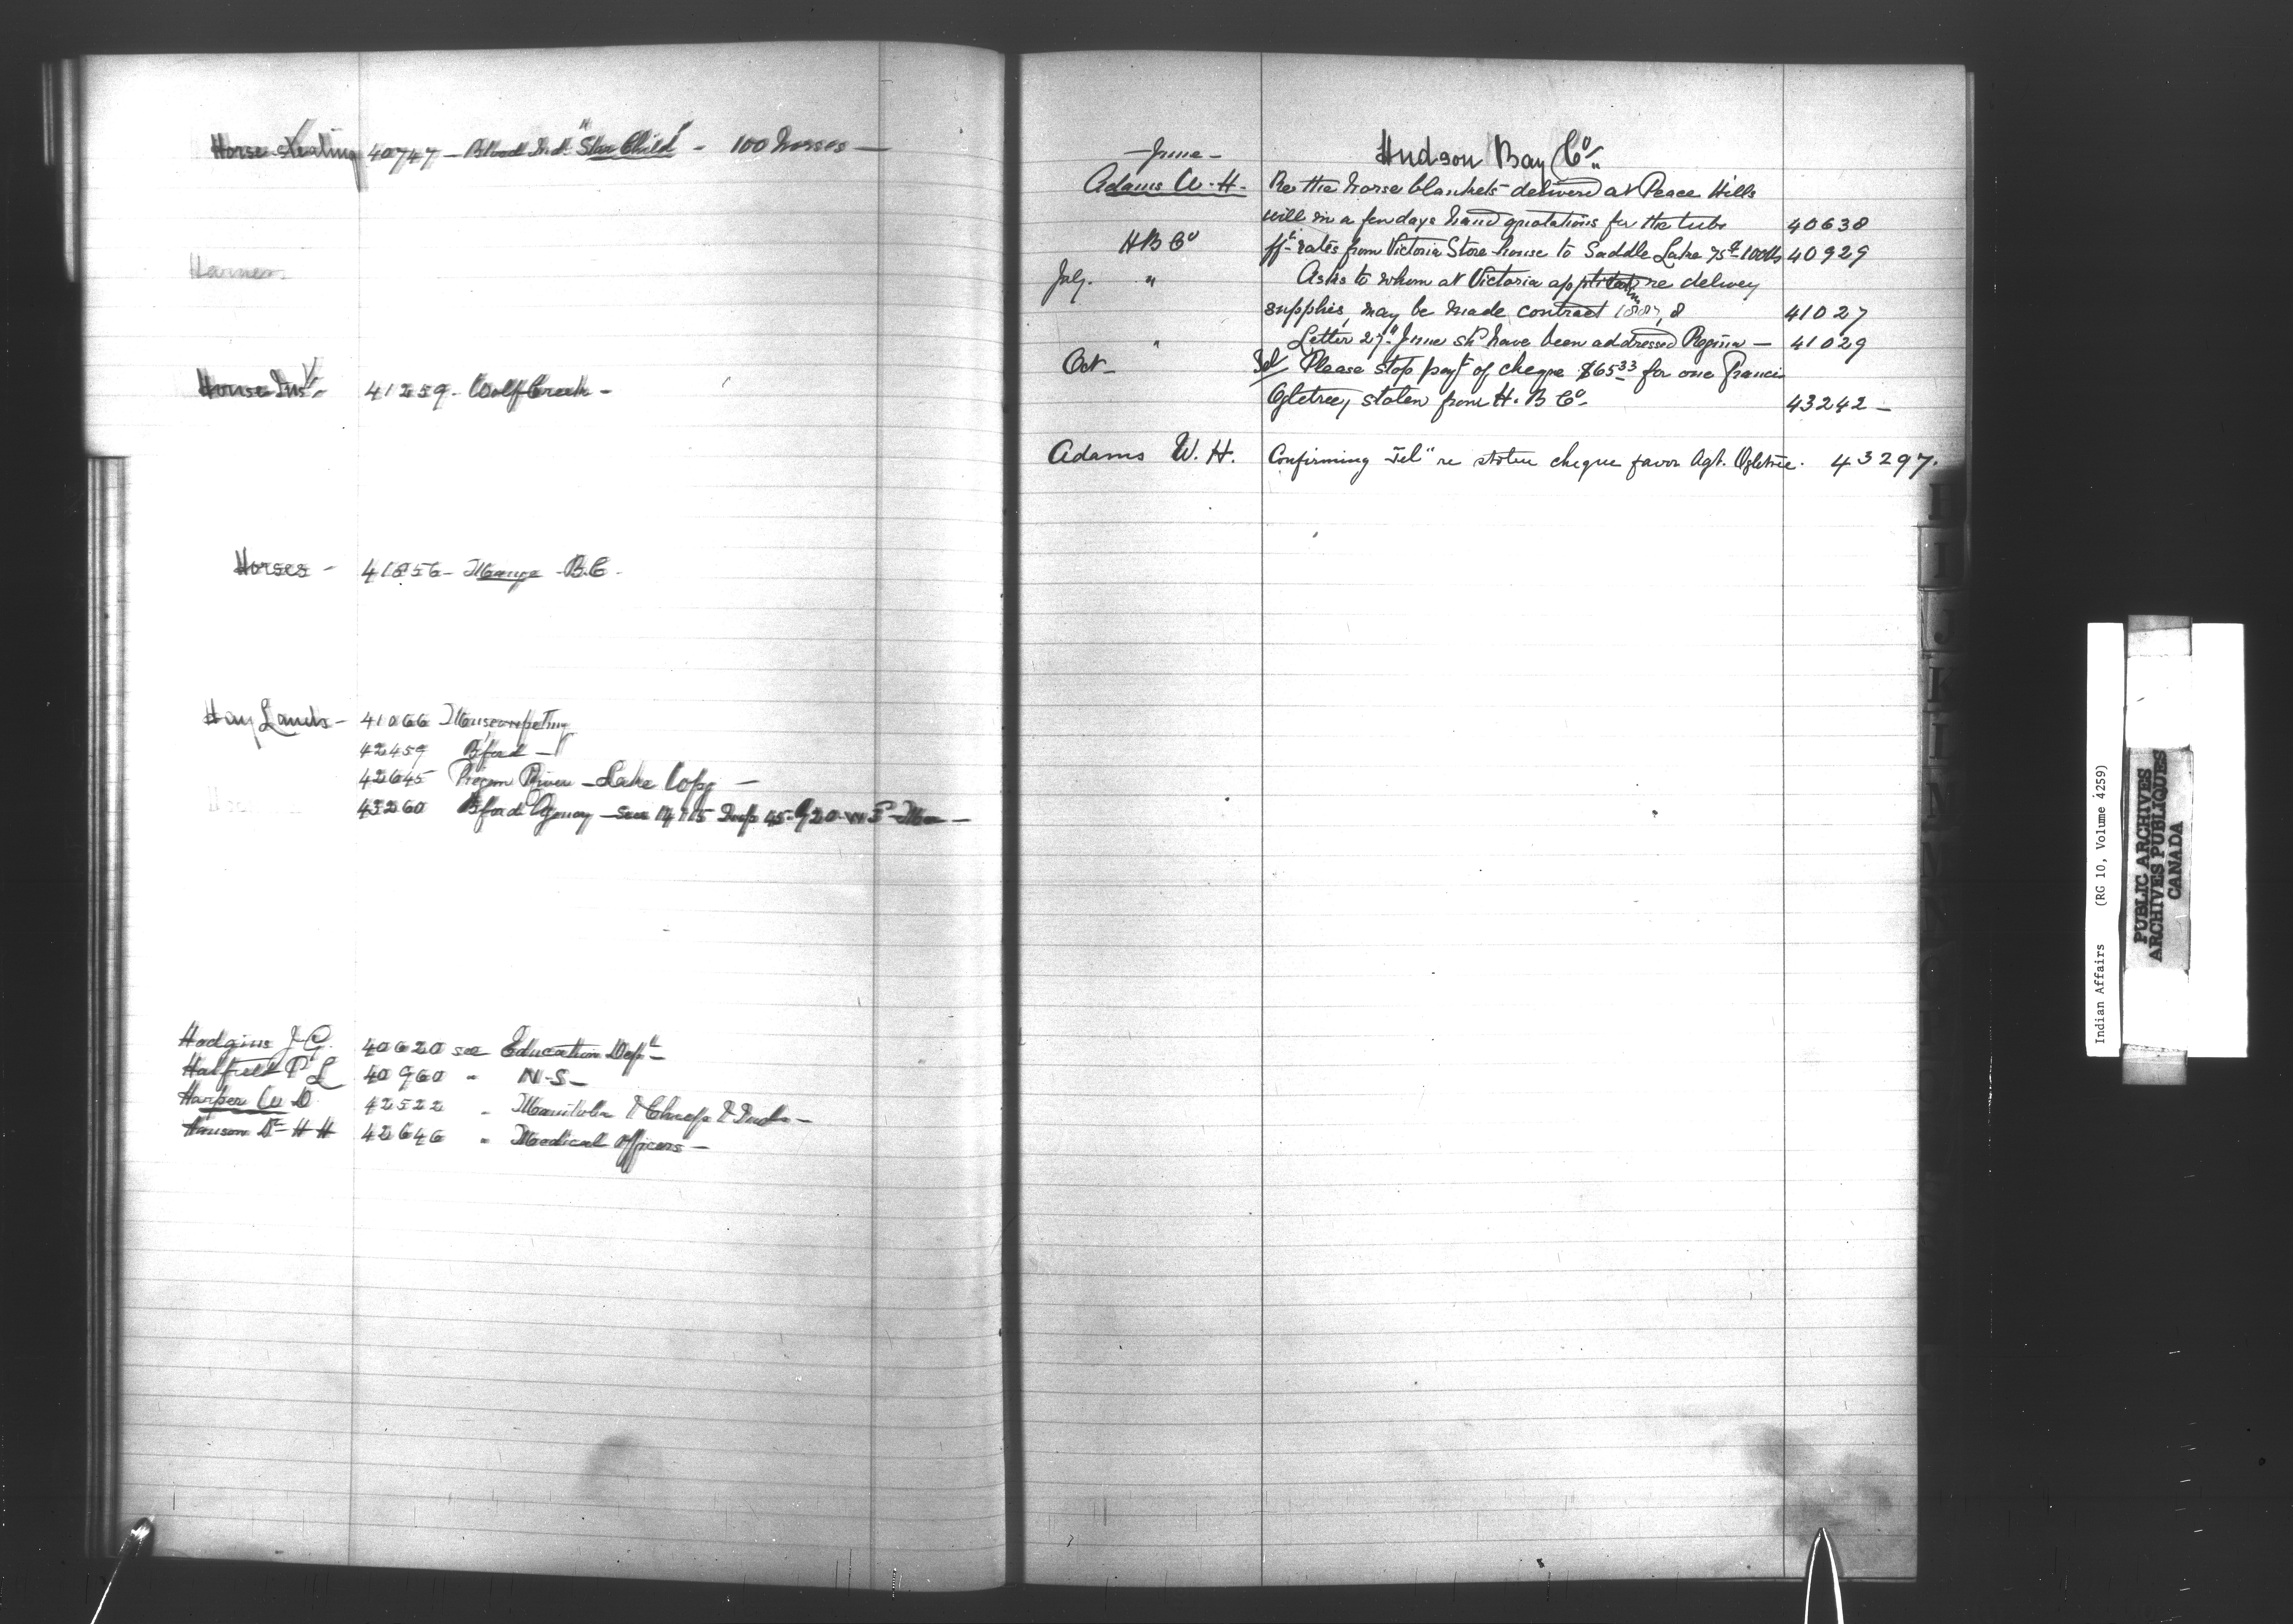 Horse stealing 40747 - Blood Ind. "Star Child" - 100 horses -
Harness
Horse Ins - 41259 - Wolf Creek -
Horses - 41856 - Mange - B.C.
Hay Lands - 41066 Muscowpeting
42459 B'ford -
42645 Pigeon River - Lake
43260 B'ford Agency - Sec 14 & 15 45
Hodgins J. G. 40620 see Education Dept -
Hatfield P L 40960 " N.S -
Harper W D 42522 " Manitoba & Chiefs & Inds -
Hanson Dr H H 42646 " Medical Officers -
Hudson Bay Co.
- June -
Adams W. H. Re the horse blankets delivered at Peace Hills
will in a few days hand quotations for the tubs 40638
H B Co fft rates from Victoria Store house to Saddle Lake 75c 100 lbs 40929
July. " Asks to whom at Victoria application re delivery
supplies, may be made contract 1887, 8 41027
" Letter 27th June shd have been addressed Regina - 41029
Oct - Tel Please stop payt of cheque $65.33 for one Francis
Ogletree, stolen from H. B Co - 43242 -
Adams W. H. Confirming Tel" re stolen cheque favor Agt. Ogletree. 43297.
H
I
J
K
L
M
Indian Affairs (RG 10, Volume 4259)
PUBLIC ARCHIVES
ARCHIVES PUBLIQUES
CANADA